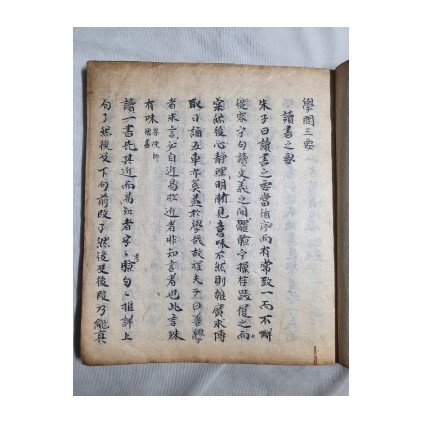 學問三要
讀書之要
朱子曰讀書之要當循序而有常致一而不懈
從容乎句讀文義之間體驗乎操存踐履之而
實然後心靜理明漸見意味不然則雖廣求博
取日誦五車亦奚益於學哉故程夫子曰善學
者求言必自近易於近者非知言者也此言殊
有味答陳師德書
讀一書先其近而易知者字〻驗句〻推詳上
句了然後及下句前段了然後及後段乃能真